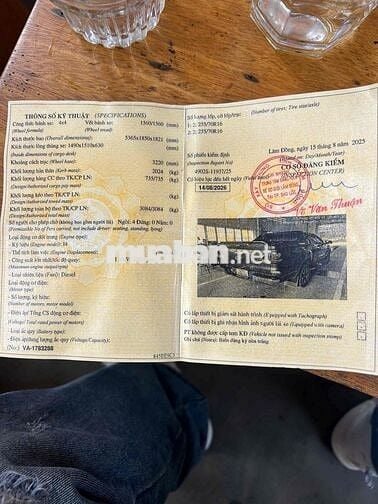 THÔNG SỐ KỸ THUẬT (SPECIFICATIONS)
Công thức bánh xe: 4x4 Vết bánh xe: 1560/1560 (mm)
(Wheel formula) (Wheel tread)
Kích thước bao (Overall dimensions): 5365x1850x1821 (mm)
Kích thước lòng thùng xe: 1490x1510x630 (mm)
(Inside dimensions of cargo deck)
Khoảng cách trục (Wheel base): 3220 (mm)
Khối lượng bản thân (Kerb mass): 2024 (kg)
Khối lượng CC theo TK/CP LN: 735/735 (kg)
(Design/authorized cargo mass)
Khối lượng kéo theo TK/CP LN: (kg)
(Design/authorized towed mass)
Khối lượng toàn bộ theo TK/CP LN: 3084/3084 (kg)
(Design/authorized total mass)
Số người cho phép chở (không bao gồm người lái): Ngồi: 4 Đứng: 0 Nằm: 0
(Permissible No of Pers carried, not include driver: seating, standing, lying)
Loại động cơ đốt trong (Engine type):
- Ký hiệu (Engine model):
- Thể tích làm việc (Engine Displacement):
- Công suất lớn nhất/tốc độ quay:
(Maximum engine output/rpm)
- Loại nhiên liệu (Fuel): Diesel
Loại động cơ điện:
(Motor type)
- Số lượng, ký hiệu:
(Number of motors, motor model)
- Điện áp/ Tổng CS động cơ điện:
(Voltage/ Total rated power of motors)
- Loại ắc quy (Battery type):
- Điện áp/dung lượng ắc quy (Voltage/Capacity):
(No:) VA-1783288
Số lượng lốp, cỡ lốp/trục: (Number of tires; Tire size/axle)
1: 2; 255/70R16
2: 2; 255/70R16
Số phiếu kiểm định
(Inspection Report No)
4902S-11937/25
Có hiệu lực đến hết ngày
14/08/2026
Lâm Đồng, ngày 15 tháng 8 năm 2025
(Issued on: Day/Month/Year)
CƠ SỞ ĐĂNG KIỂM
(INSPECTION CENTER)
Vũ Văn Thuận
muaban.net
Có lắp thiết bị giám sát hành trình (Equipped with Tachograph)
Có lắp thiết bị ghi nhận hình ảnh người lái xe (Equipped with camera)
PT không được cấp tem KĐ (Vehicle not issued with inspection stamp)
Ghi chú (Notes): Biển đăng ký nền trắng